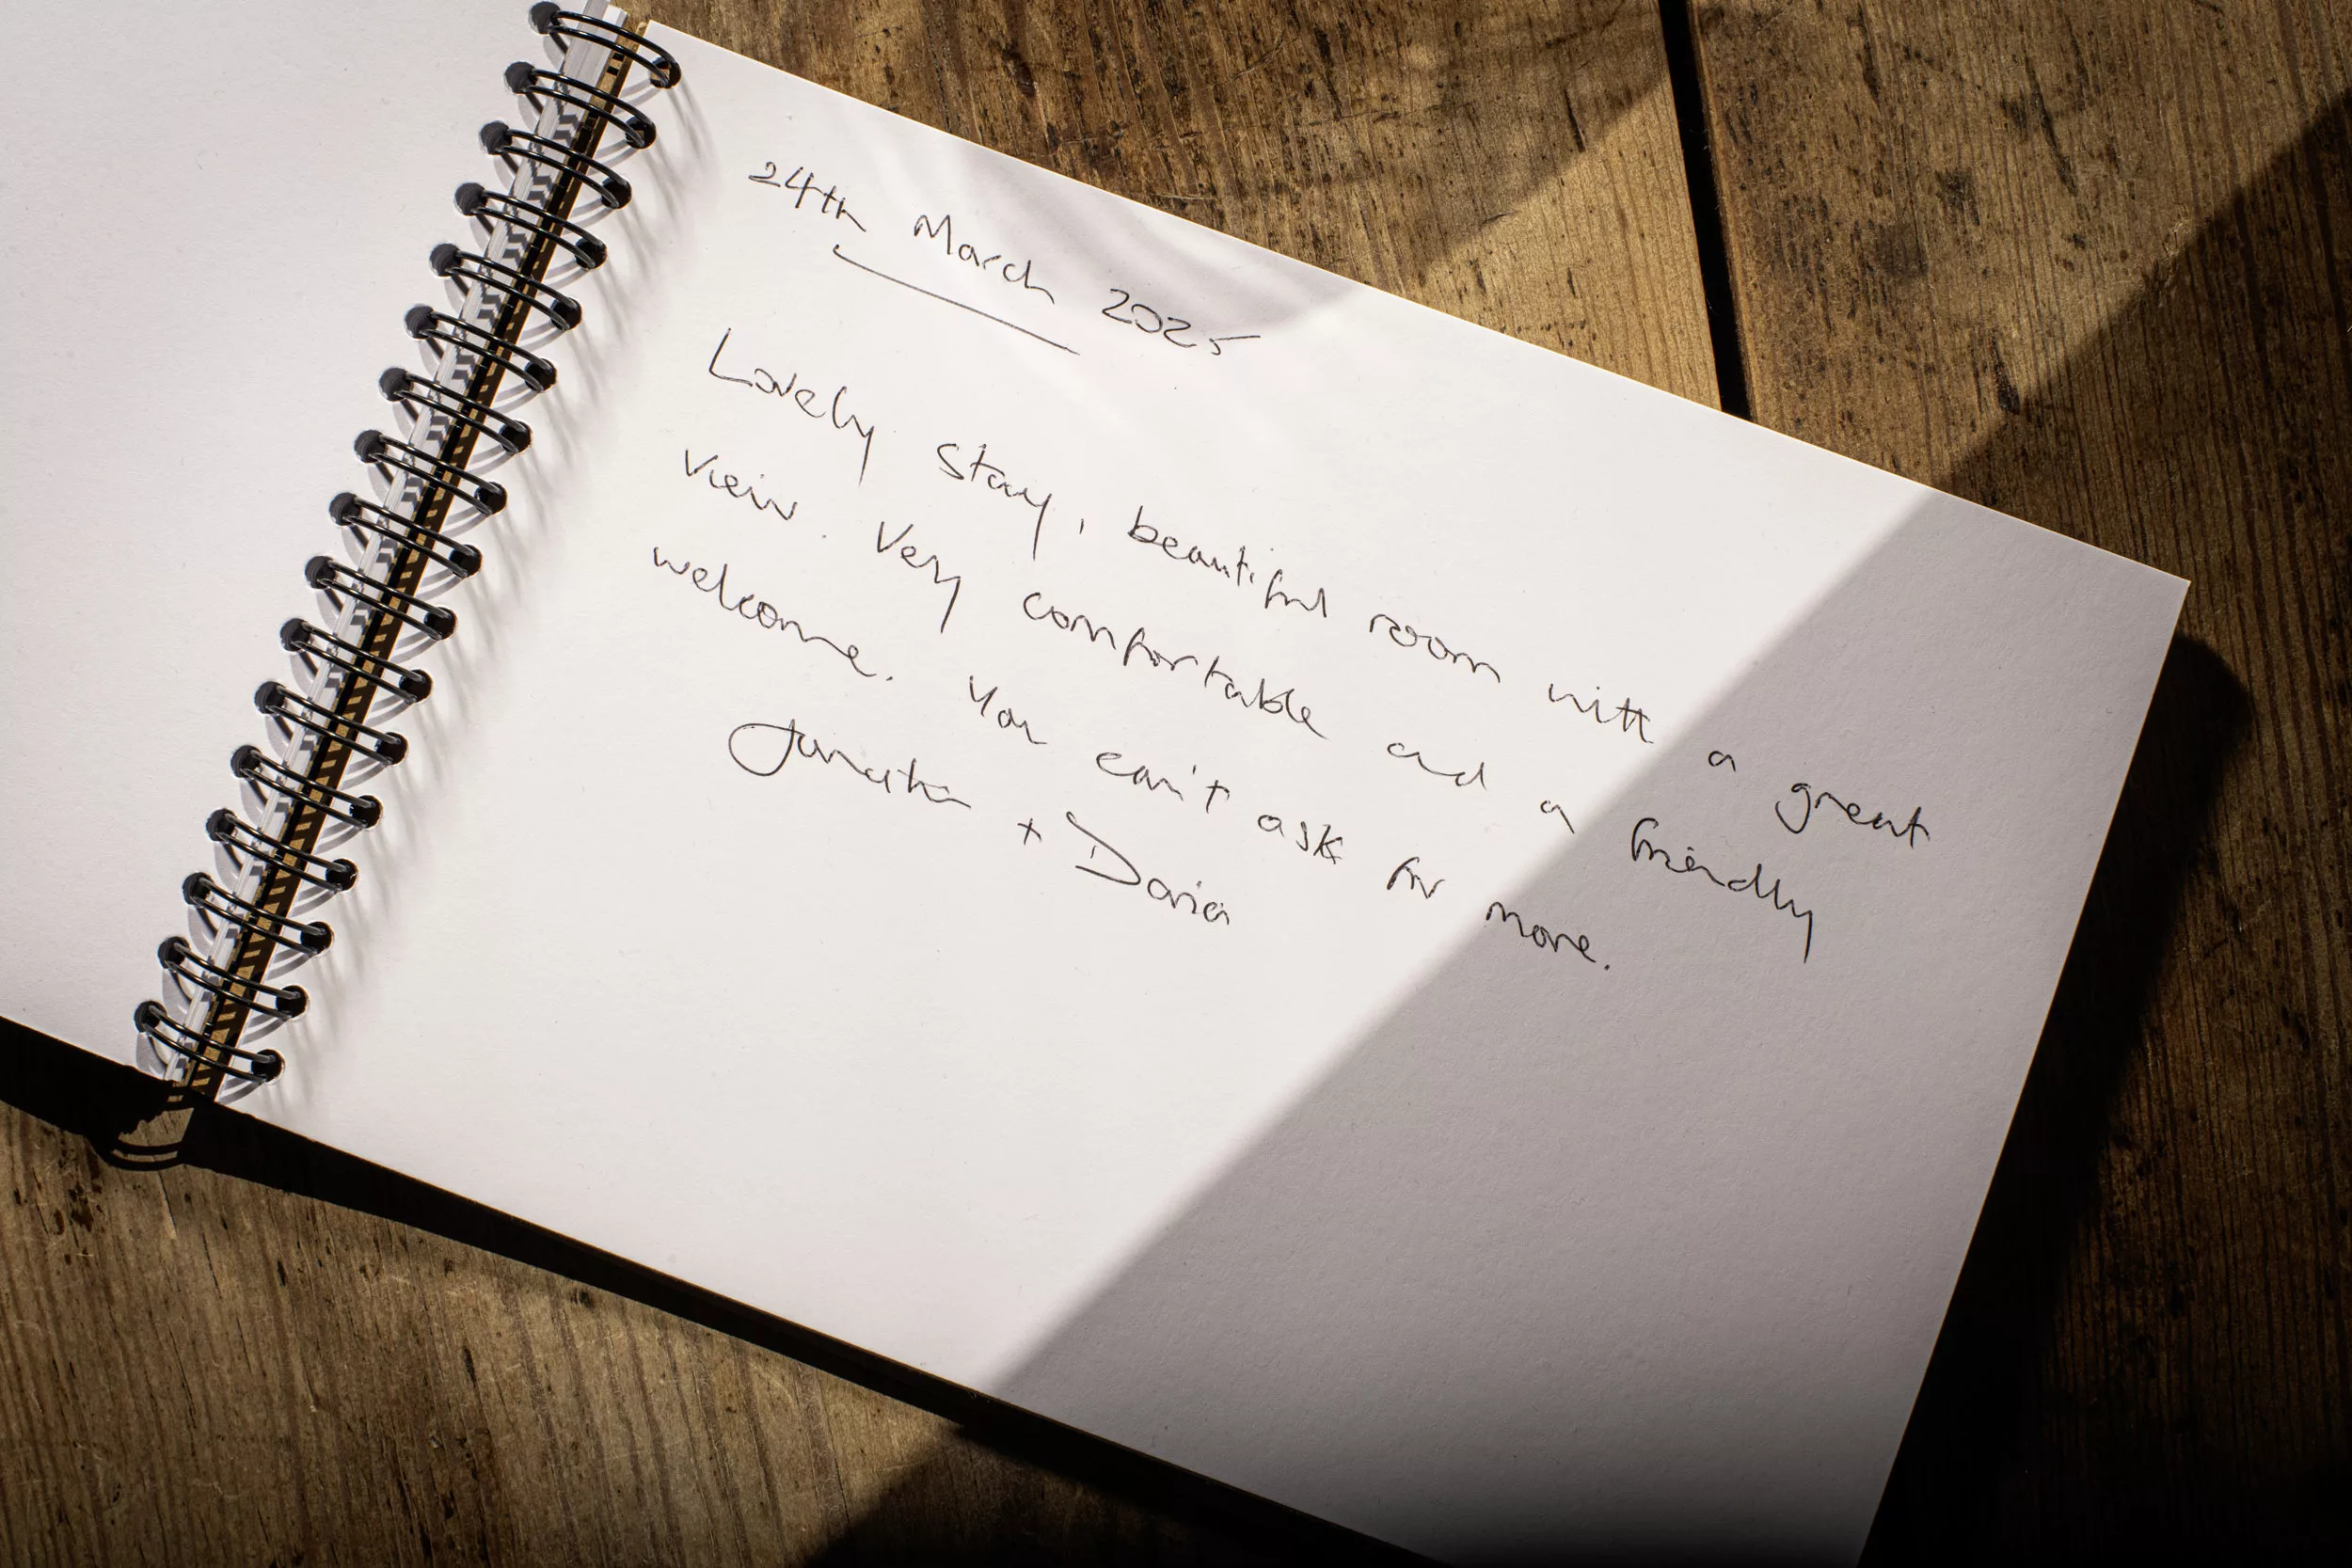 24th March 2025
Lovely stay, beautiful room with a great
view. Very comfortable and a friendly
welcome. You can't ask for more.
Jonathan + Daria